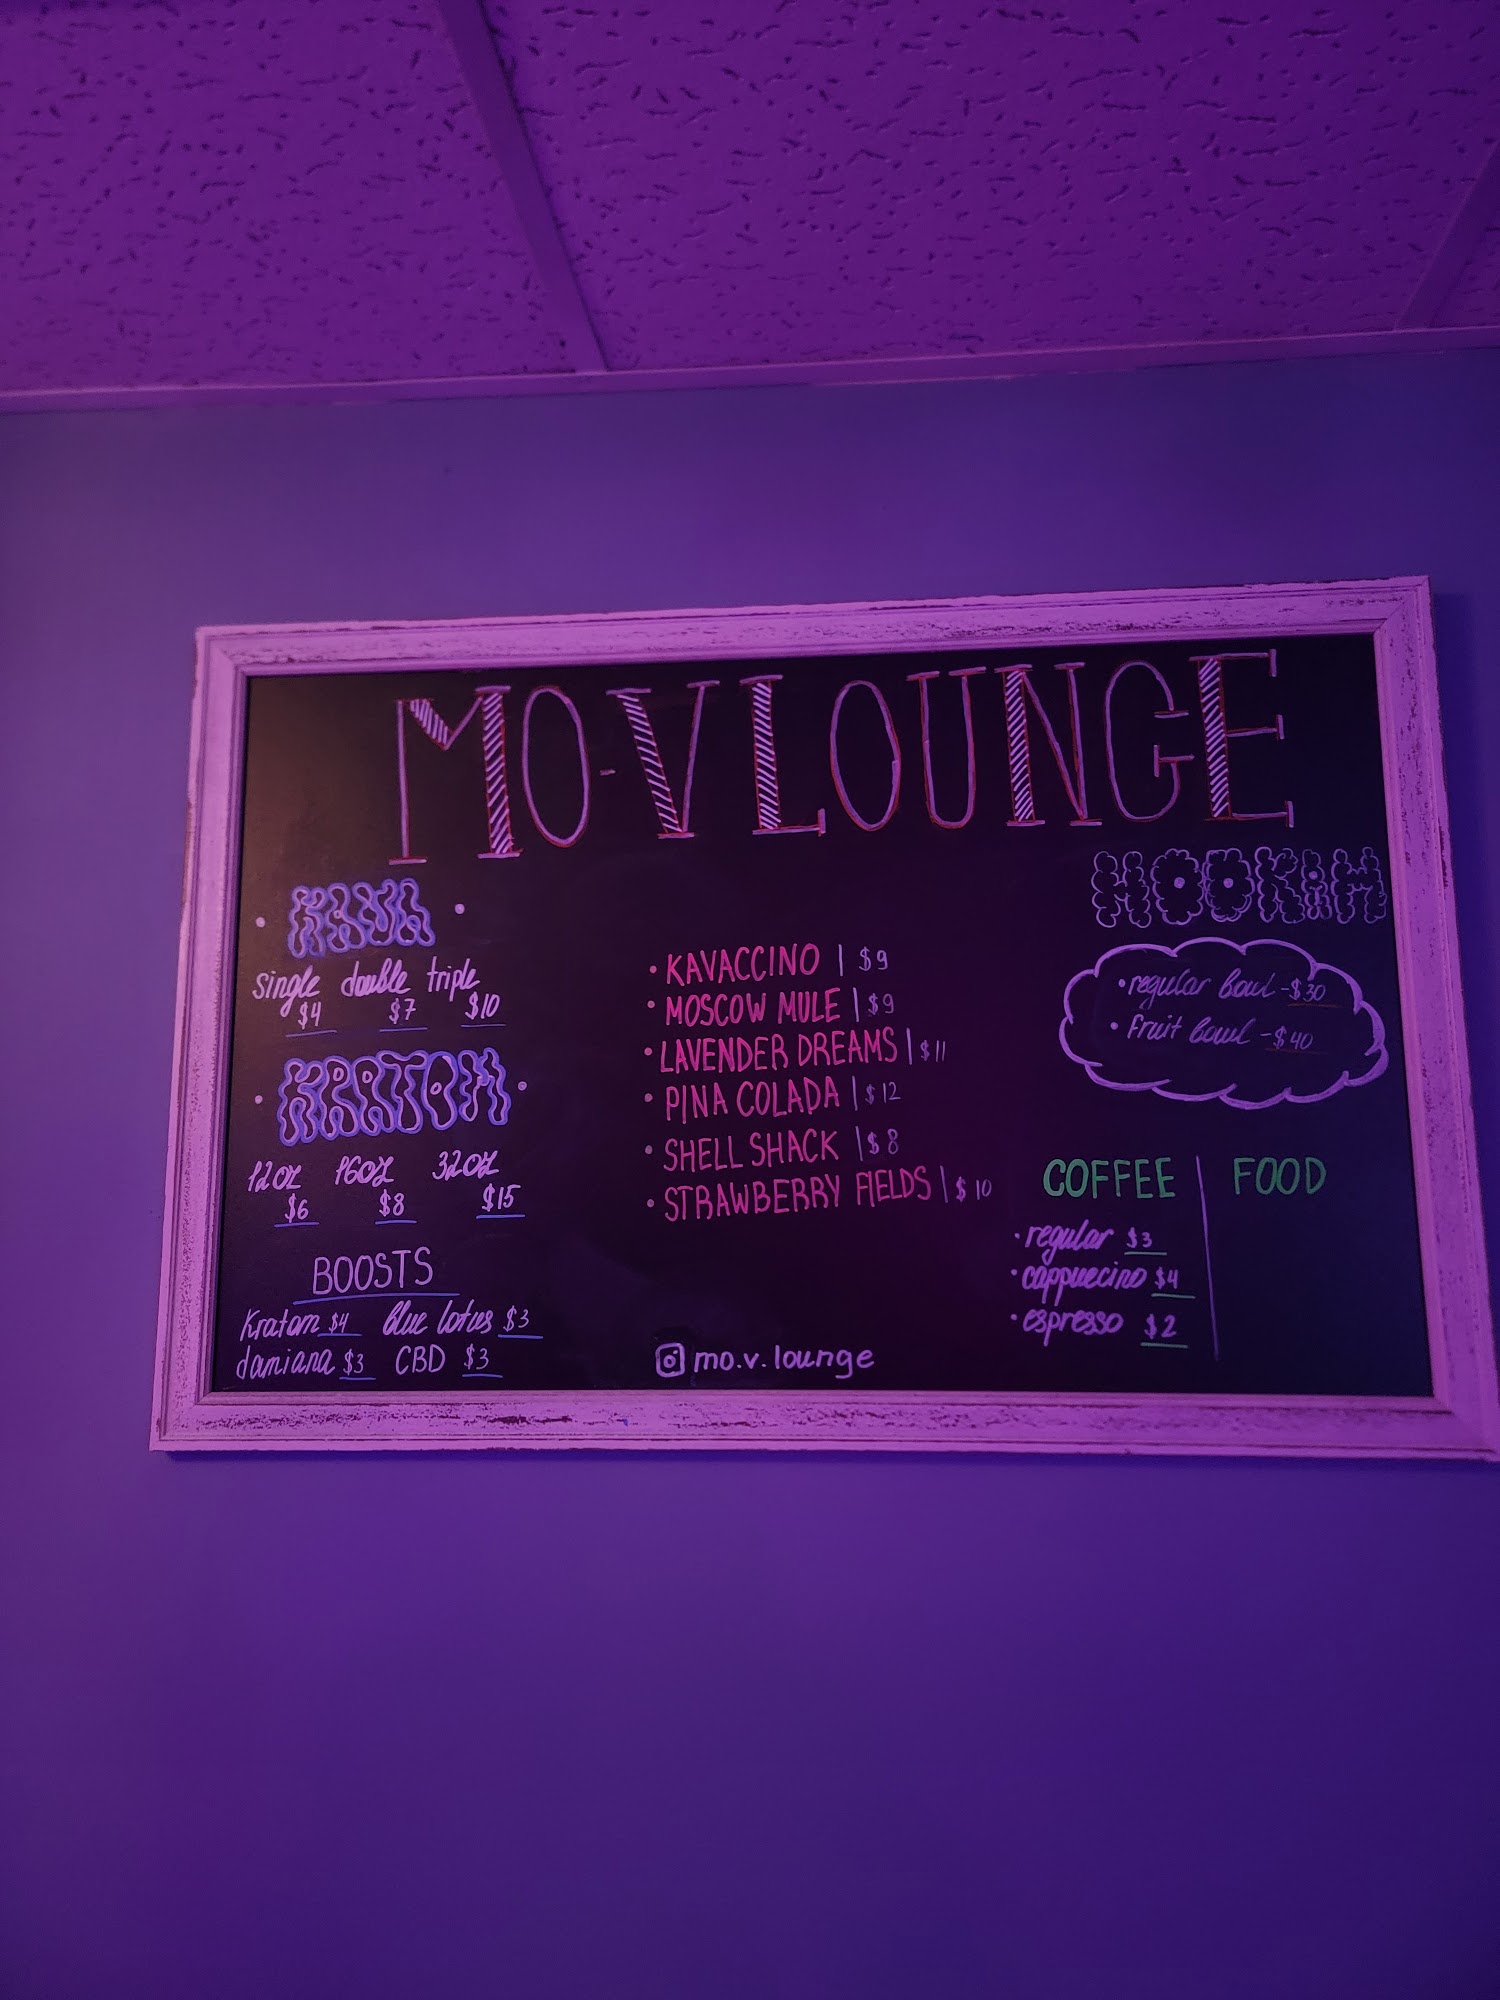 MO-V LOUNGE
· KAVA ·
single double triple
$4 $7 $10
· KRATOM ·
12oz 16oz 32oz
$6 $8 $15
BOOSTS
Kratom $4 blue lotus $3
damiana $3 CBD $3
· KAVACCINO | $9
· MOSCOW MULE | $9
· LAVENDER DREAMS | $11
· PINA COLADA | $12
· SHELL SHACK | $8
· STRAWBERRY FIELDS | $10
mo.v.lounge
HOOKAH
· regular bowl - $30
· fruit bowl - $40
COFFEE | FOOD
· regular $3
· cappuccino $4
· espresso $2